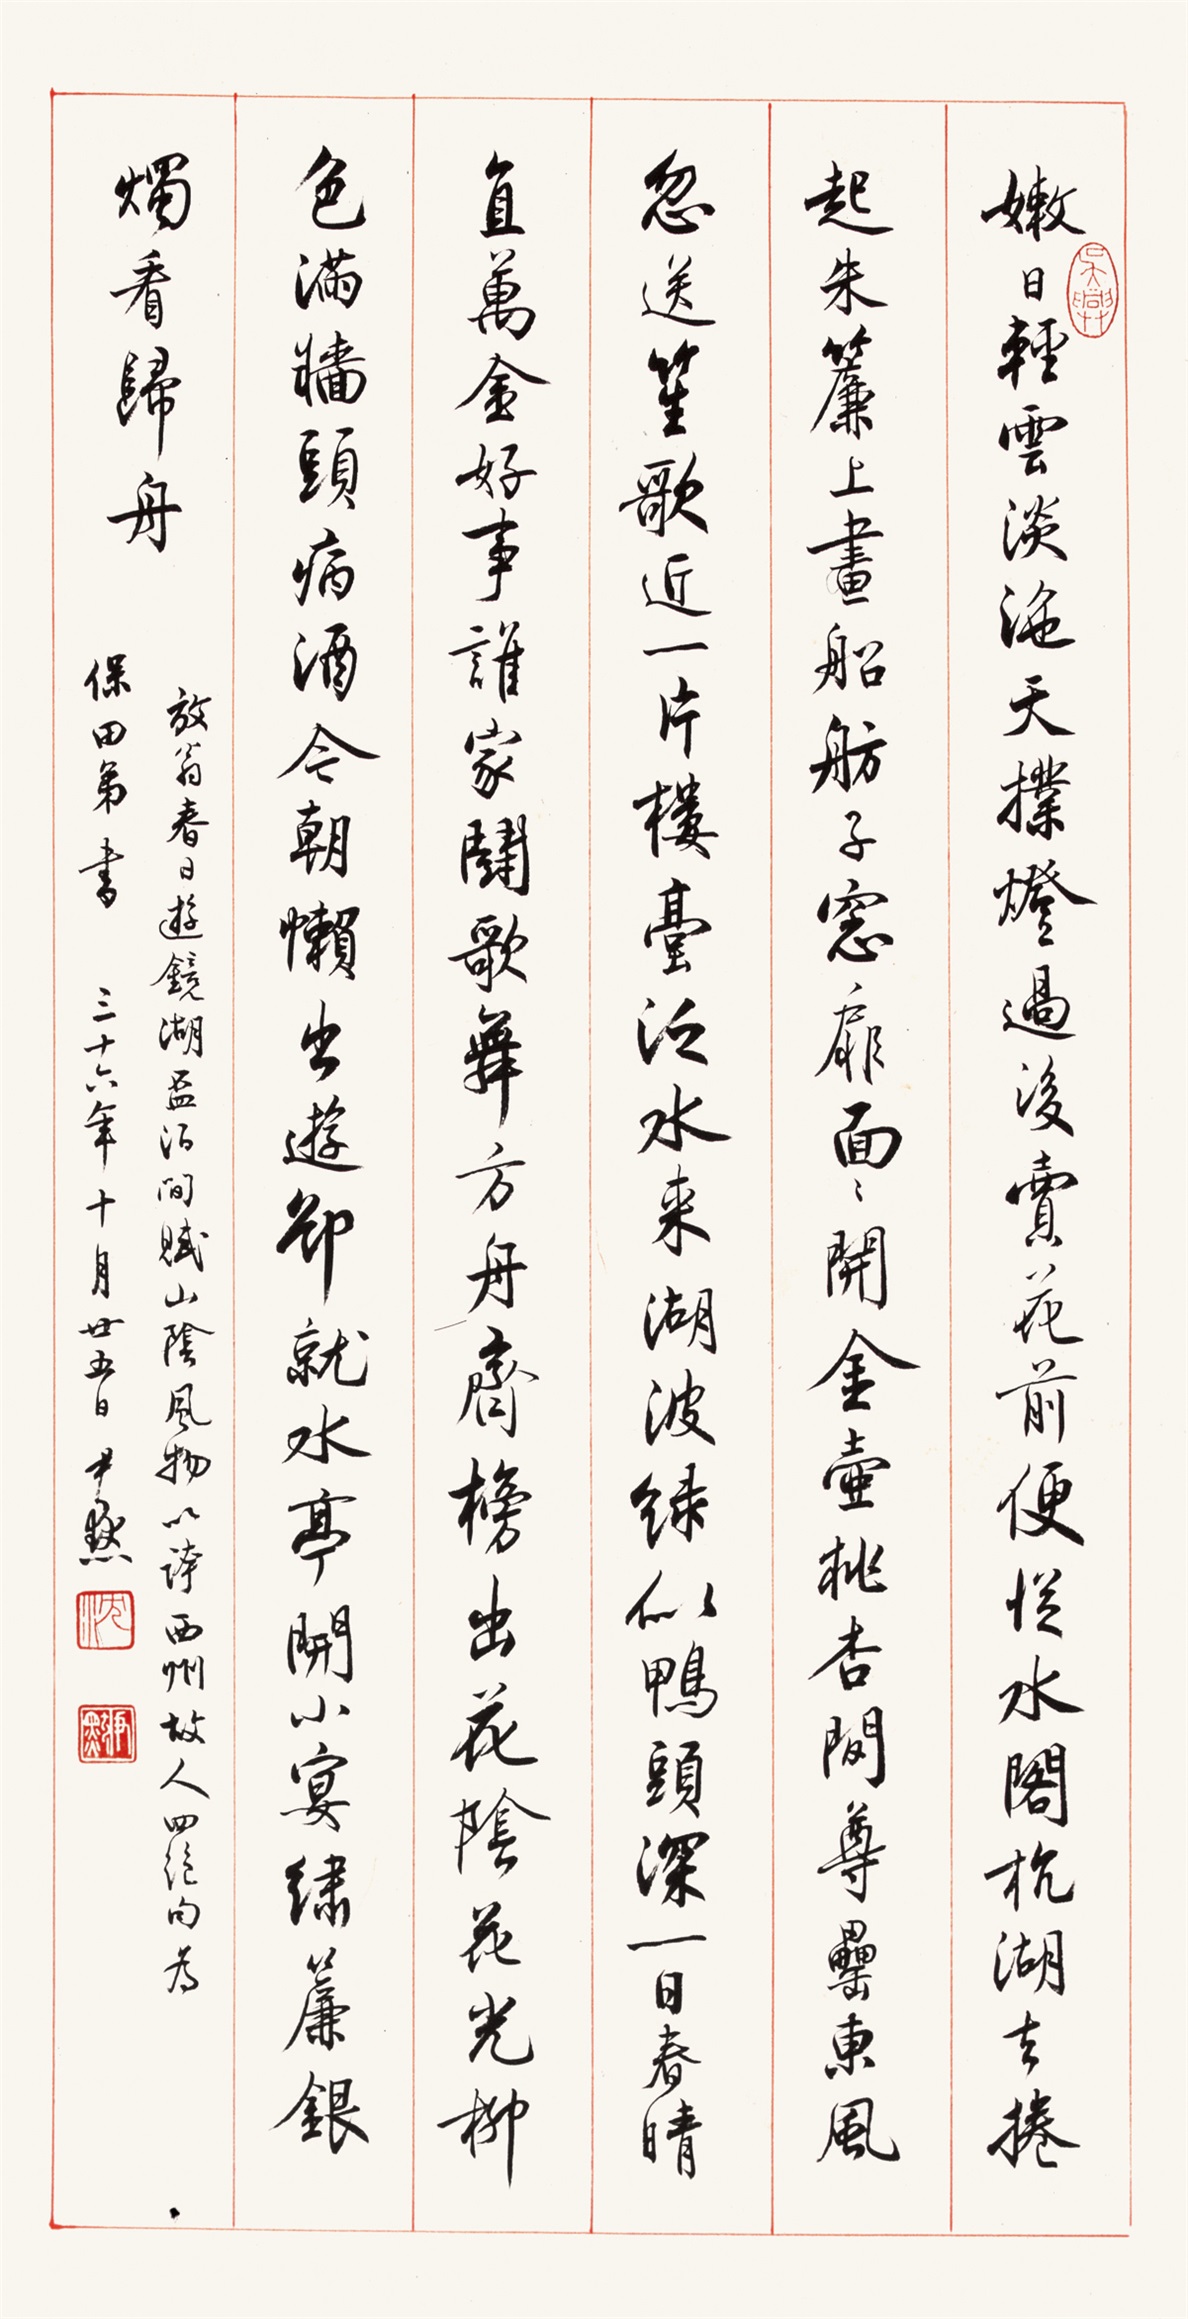 嫩日輕雲淡沲天撲燈過後賣花前便從水閣杭湖去捲
起朱簾上畫船舫子窓扉面〻開金壺桃杏間尊罍東風
忽送笙歌近一片樓臺泛水来湖波緑似鴨頭深一日春晴
直萬金好事誰家鬭歌舞方舟齊榜出花陰花光柳
色滿牆頭病酒今朝懶出遊卻就水亭開小宴繡簾銀
燭看歸舟
放翁春日遊鏡湖泊間賦山陰風物以誇西州故人四絕句為
保田弟書 三十六年十月廿五日 尹默
沈
尹默